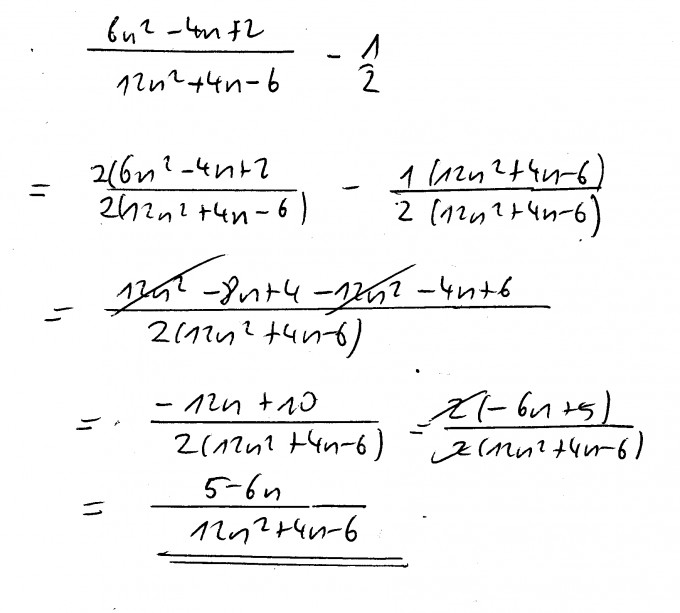 (6n² - 4n + 2)/(12n² + 4n - 6) - 1/2
= 2(6n² - 4n + 2/2(12n² + 4n - 6) - 1(12n² + 4n - 6)/2(12n² + 4n - 6)
= 12n² - 8n + 4 - 12n² - 4n + 6/2(12n² + 4n - 6)
= -12n + 10/2(12n² + 4n - 6) = 2(-6n + 5)/2(12n² + 4n - 6)
= 5 - 6n/12n² + 4n - 6